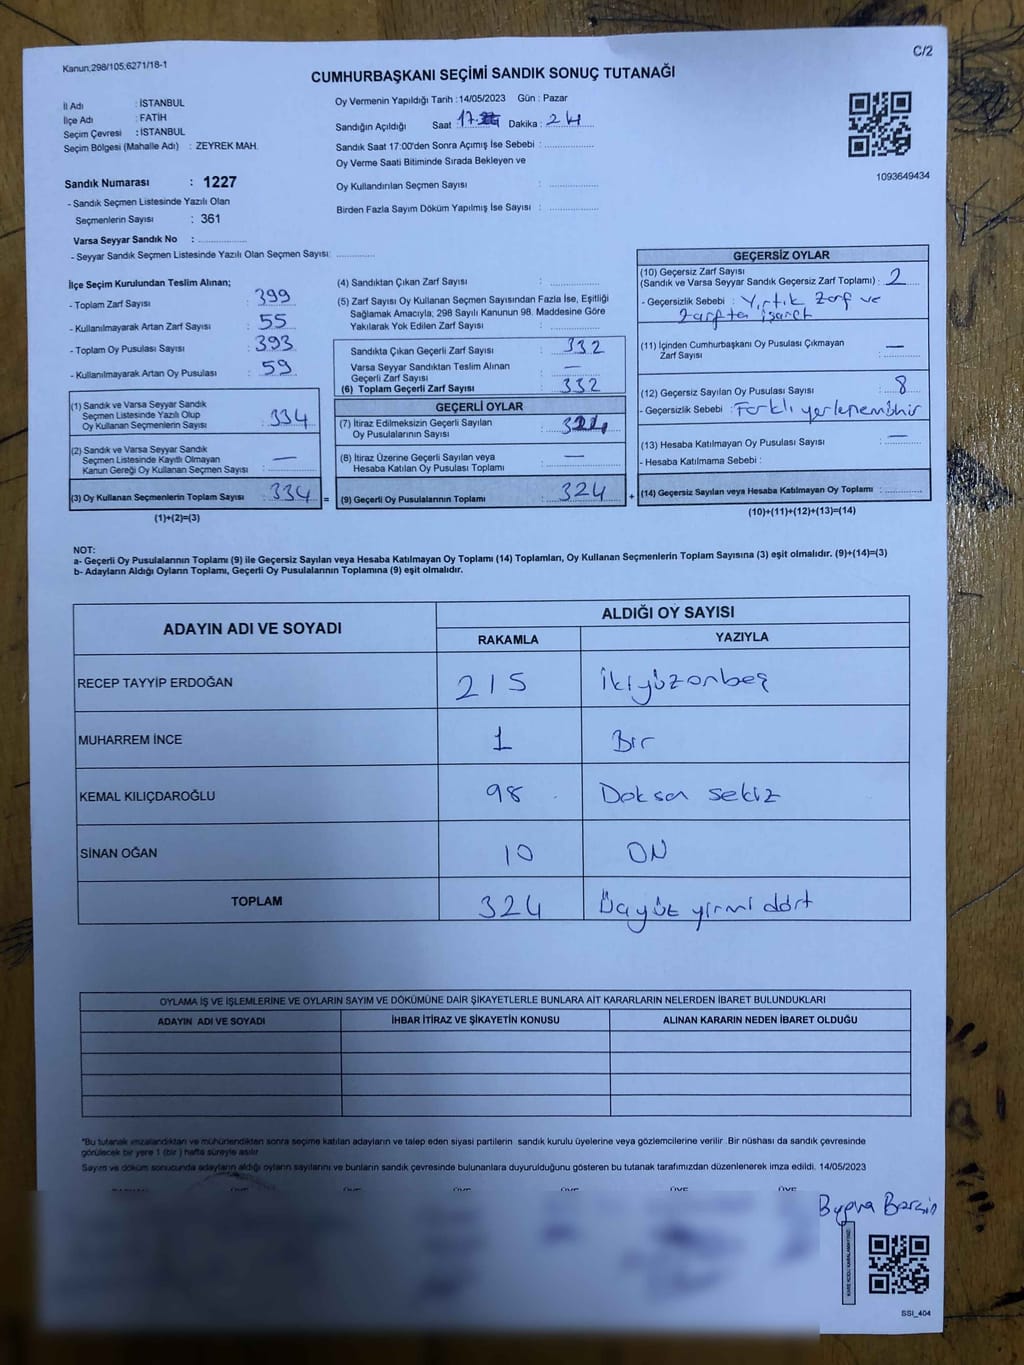 Kanun,298/105,6271/18-1
C/2
CUMHURBAŞKANI SEÇİMİ SANDIK SONUÇ TUTANAĞI
İl Adı : İSTANBUL
İlçe Adı : FATİH
Seçim Çevresi : İSTANBUL
Seçim Bölgesi (Mahalle Adı) : ZEYREK MAH.
Oy Vermenin Yapıldığı Tarih :14/05/2023 Gün : Pazar
Sandığın Açıldığı Saat : 17. Dakika : 24
Sandık Saat 17:00'den Sonra Açımış İse Sebebi :
Oy Verme Saati Bitiminde Sırada Bekleyen ve
Oy Kullandırılan Seçmen Sayısı :
Birden Fazla Sayım Döküm Yapılmış İse Sayısı :
1093649434
Sandık Numarası : 1227
- Sandık Seçmen Listesinde Yazılı Olan
Seçmenlerin Sayısı : 361
Varsa Seyyar Sandık No :
- Seyyar Sandık Seçmen Listesinde Yazılı Olan Seçmen Sayısı:
İlçe Seçim Kurulundan Teslim Alınan;
- Toplam Zarf Sayısı : 399
- Kullanılmayarak Artan Zarf Sayısı : 55
- Toplam Oy Pusulası Sayısı : 393
- Kullanılmayarak Artan Oy Pusulası : 59
(1) Sandık ve Varsa Seyyar Sandık
Seçmen Listesinde Yazılı Olup
Oy Kullanan Seçmenlerin Sayısı : 334
(2) Sandık ve Varsa Seyyar Sandık
Seçmen Listesinde Kayıtlı Olmayan
Kanun Gereği Oy Kullanan Seçmen Sayısı : —
(3) Oy Kullanan Seçmenlerin Toplam Sayısı : 334 =
(1)+(2)=(3)
(4) Sandıktan Çıkan Zarf Sayısı :
(5) Zarf Sayısı Oy Kullanan Seçmen Sayısından Fazla İse, Eşitliği
Sağlamak Amacıyla; 298 Sayılı Kanunun 98. Maddesine Göre
Yakılarak Yok Edilen Zarf Sayısı :
Sandıkta Çıkan Geçerli Zarf Sayısı : 332
Varsa Seyyar Sandıktan Teslim Alınan
Geçerli Zarf Sayısı : —
(6) Toplam Geçerli Zarf Sayısı : 332
GEÇERLİ OYLAR
(7) İtiraz Edilmeksizin Geçerli Sayılan
Oy Pusulalarının Sayısı : 324
(8) İtiraz Üzerine Geçerli Sayılan veya
Hesaba Katılan Oy Pusulası Toplamı : —
(9) Geçerli Oy Pusulalarının Toplamı : 324 +
GEÇERSİZ OYLAR
(10) Geçersiz Zarf Sayısı
(Sandık ve Varsa Seyyar Sandık Geçersiz Zarf Toplamı) : 2
- Geçersizlik Sebebi : Yırtık Zarf ve
Zarfta işaret
(11) İçinden Cumhurbaşkanı Oy Pusulası Çıkmayan
Zarf Sayısı : —
(12) Geçersiz Sayılan Oy Pusulası Sayısı : 8
- Geçersizlik Sebebi : Farklı yerlere
(13) Hesaba Katılmayan Oy Pusulası Sayısı : —
- Hesaba Katılmama Sebebi :
(14) Geçersiz Sayılan veya Hesaba Katılmayan Oy Toplamı :
(10)+(11)+(12)+(13)=(14)
NOT:
a- Geçerli Oy Pusulalarının Toplamı (9) ile Geçersiz Sayılan veya Hesaba Katılmayan Oy Toplamı (14) Toplamları, Oy Kullanan Seçmenlerin Toplam Sayısına (3) eşit olmalıdır. (9)+(14)=(3)
b- Adayların Aldığı Oyların Toplamı, Geçerli Oy Pusulalarının Toplamına (9) eşit olmalıdır.
ADAYIN ADI VE SOYADI
ALDIĞI OY SAYISI
RAKAMLA YAZIYLA
RECEP TAYYİP ERDOĞAN 215 İkiyüzonbeş
MUHARREM İNCE 1 Bir
KEMAL KILIÇDAROĞLU 98 Doksan sekiz
SİNAN OĞAN 10 ON
TOPLAM 324 Üçyüz yirmi dört
OYLAMA İŞ VE İŞLEMLERİNE VE OYLARIN SAYIM VE DÖKÜMÜNE DAİR ŞİKAYETLERLE BUNLARA AİT KARARLARIN NELERDEN İBARET BULUNDUKLARI
ADAYIN ADI VE SOYADI İHBAR İTİRAZ VE ŞİKAYETİN KONUSU ALINAN KARARIN NEDEN İBARET OLDUĞU
*Bu tutanak imzalandıktan ve mühürlendikten sonra seçime katılan adayların ve talep eden siyasi partilerin sandık kurulu üyelerine veya gözlemcilerine verilir .Bir nüshası da sandık çevresinde
görülecek bir yere 1 (bir ) hafta süreyle asılır
Sayım ve döküm sonucunda adayların aldığı oyların sayılarını ve bunların sandık çevresinde bulunanlara duyurulduğunu gösteren bu tutanak tarafımızdan düzenlenerek imza edildi. 14/05/2023
SSI_404